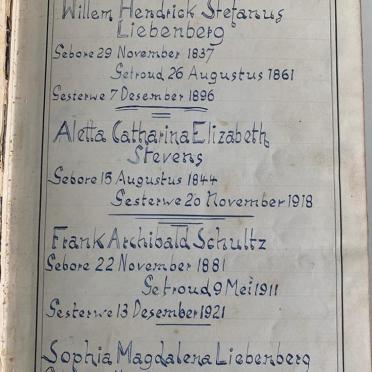 Willem Hendrick Stefanus
Liebenberg
Gebore 29 November 1837
Getroud 26 Augustus 1861
Gesterwe 7 Desember 1896
Aletta Catharina Elizabeth
Stevens
Gebore 15 Augustus 1844
Gesterwe 20 November 1918
Frank Archibald Schultz
Gebore 22 November 1881
Getroud 9 Mei 1911
Gesterwe 13 Desember 1921
Sophia Magdalena Liebenberg